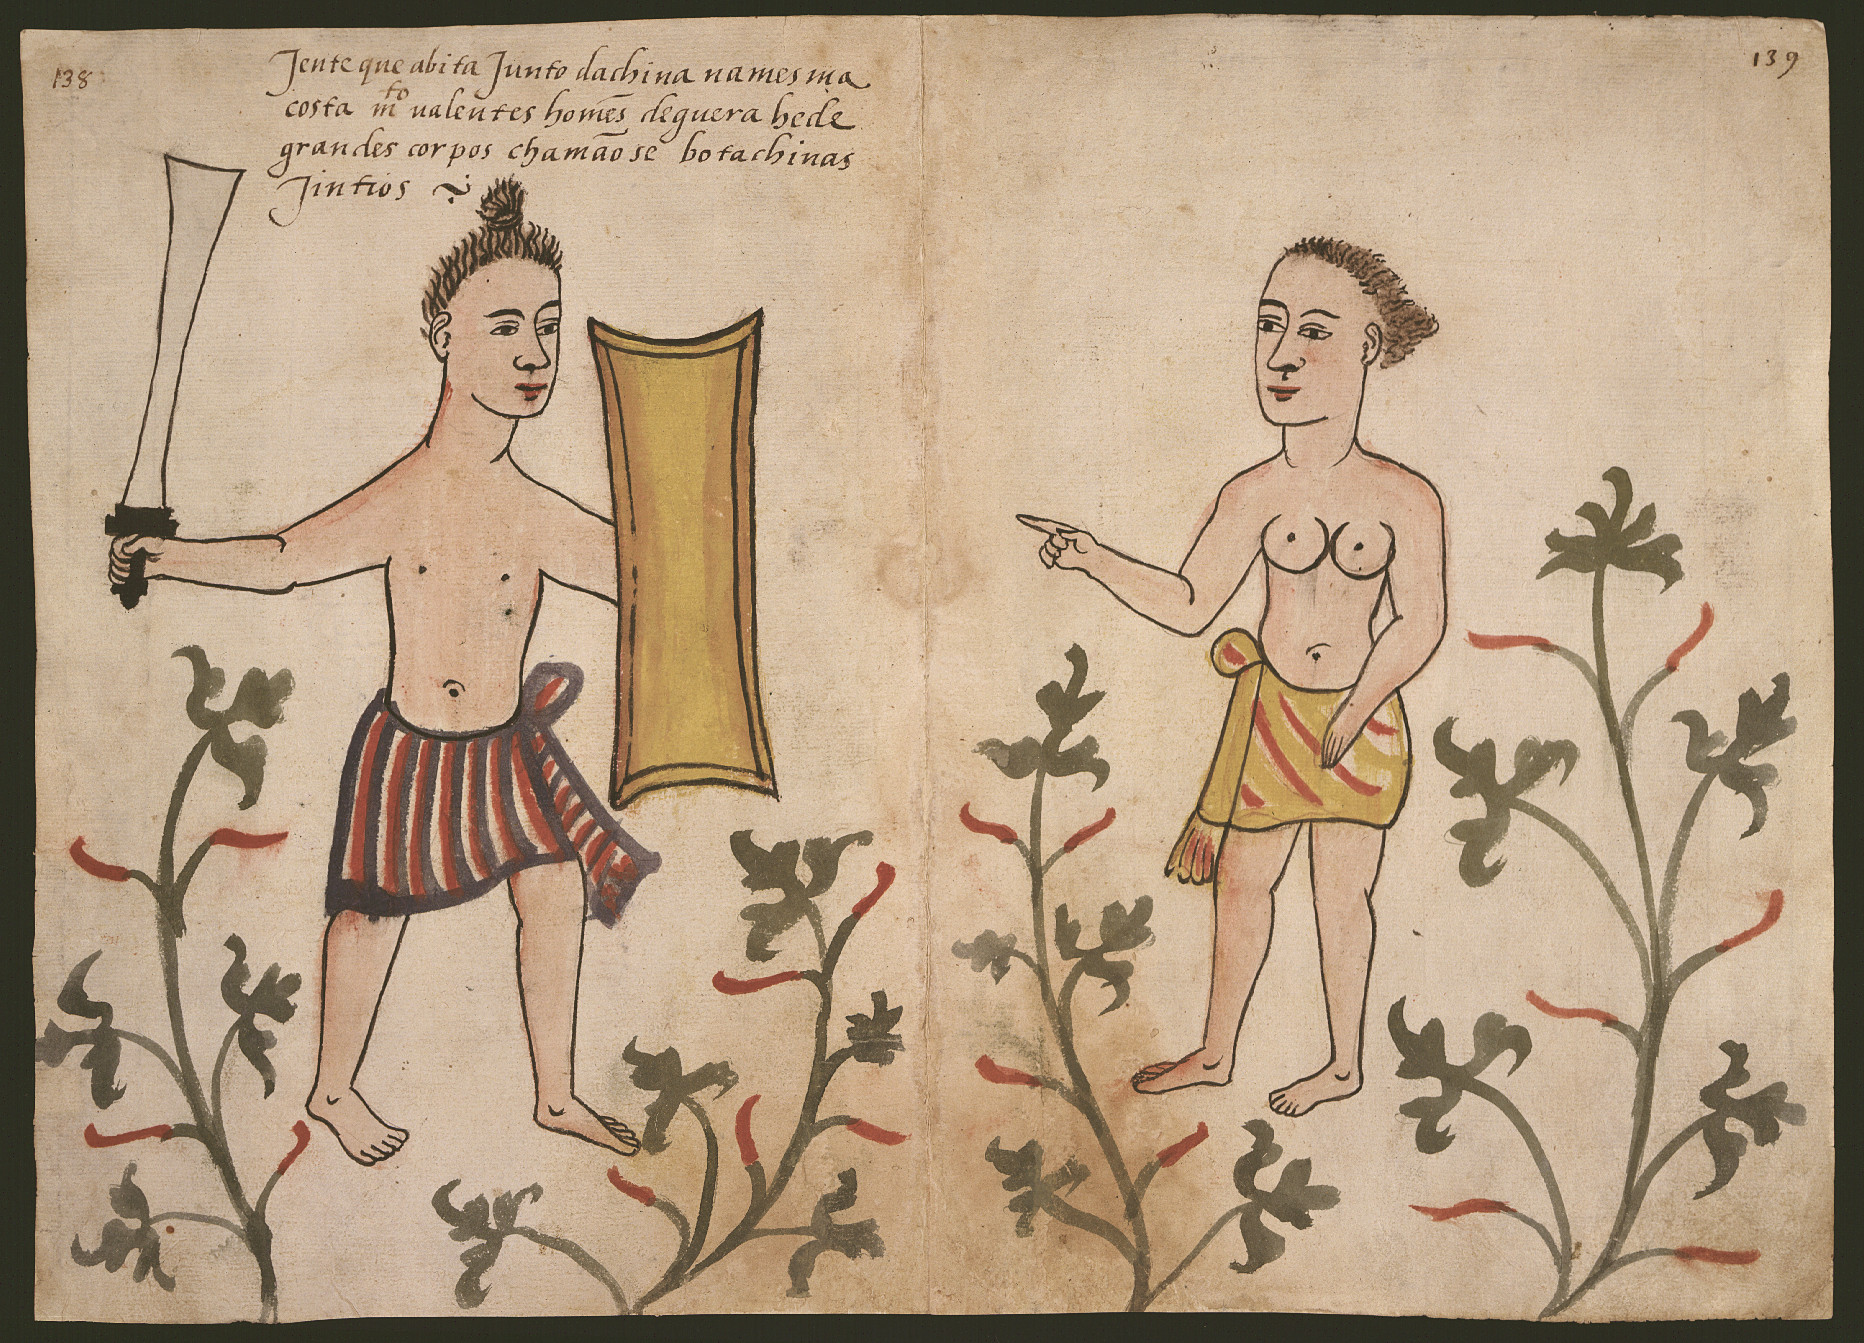 138
139
Jente que abita Junto dachina namesma
costa mto valentes homẽs deguera hede
grandes corpos chamãose botachinas
Jintios